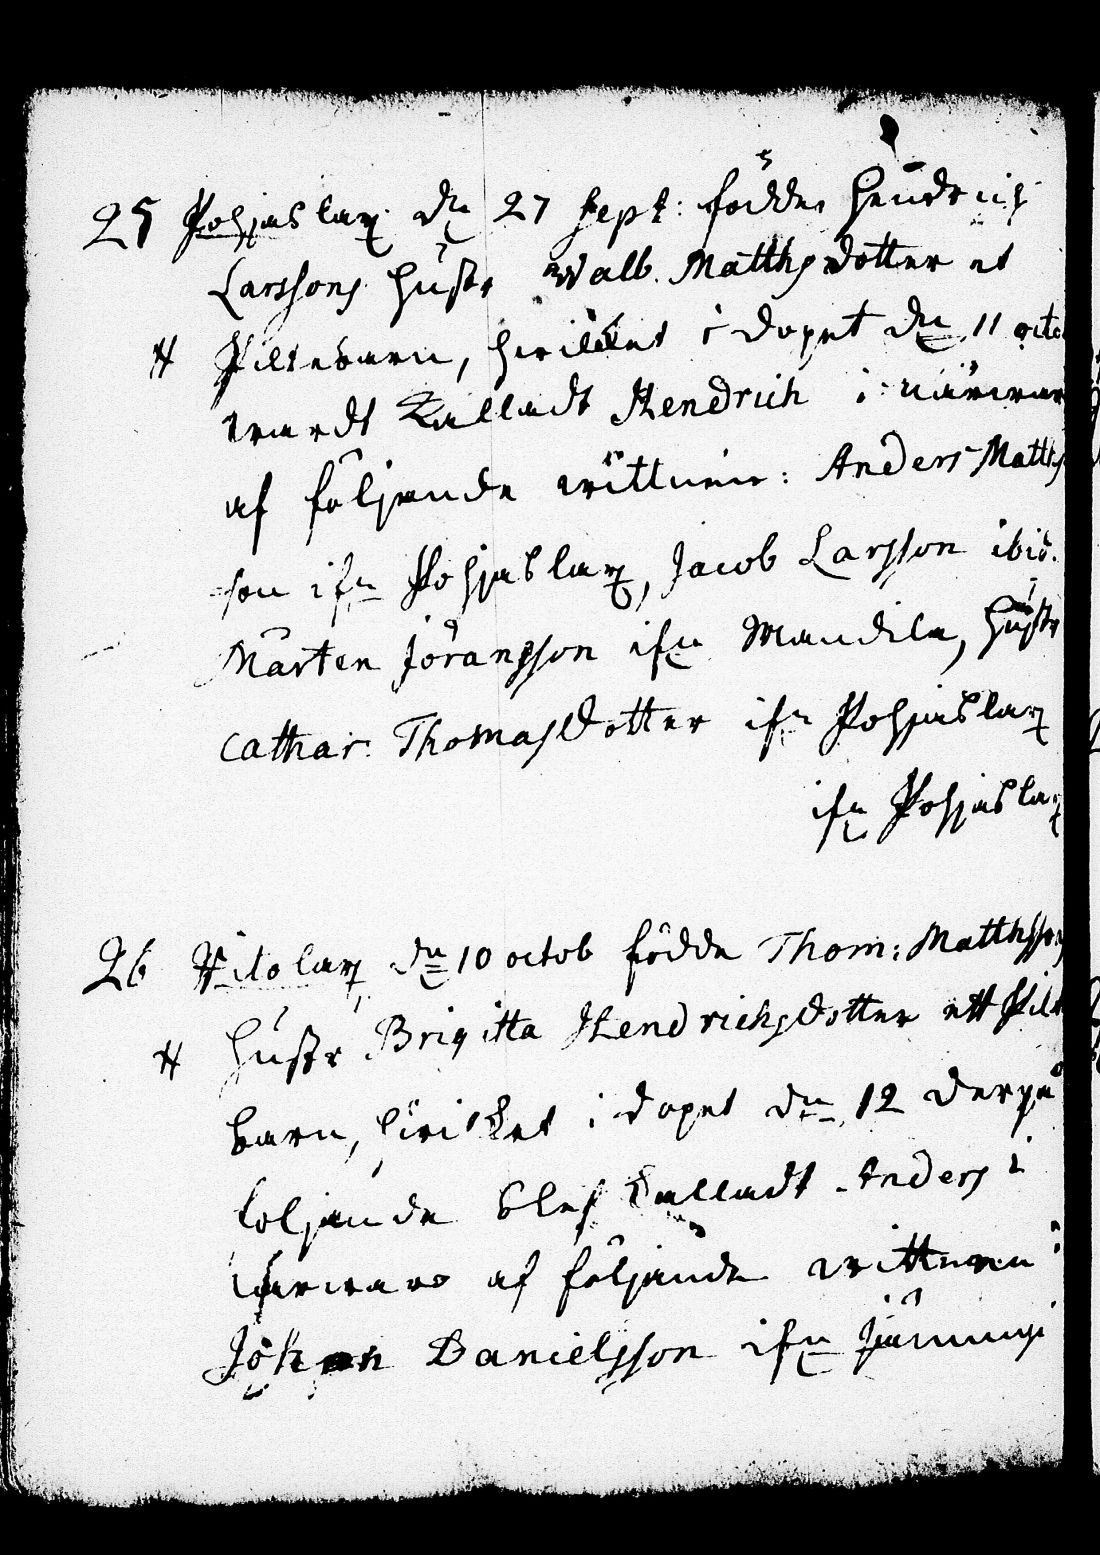 25 Pohjaslax dn 27 Sept: födde Hendrich
Larssons hustr Walb. Matthsdotter et
# Piltebarn, hvilket i dopet dn 11 octo
wardt kalladt Hendrich i närwar
af följande wittnen: Anders Matths
son ifn Pohjaslax, Jacob Larsson ibid.
Mårten Jöransson ifn Mandila, hustr
Cathar. Thomasdotter ifn Pohjaslax
ifn Pohjaslax
26 dn 10 octob födde Thom: Matthsson
# hustr Brigitta Hendrichsdotter ett Pilt
barn, hvilket i dopet dn 12 derpå
följande blef kalladt Anders i
närwaro af följande wittnen:
Johan Danielsson ifn